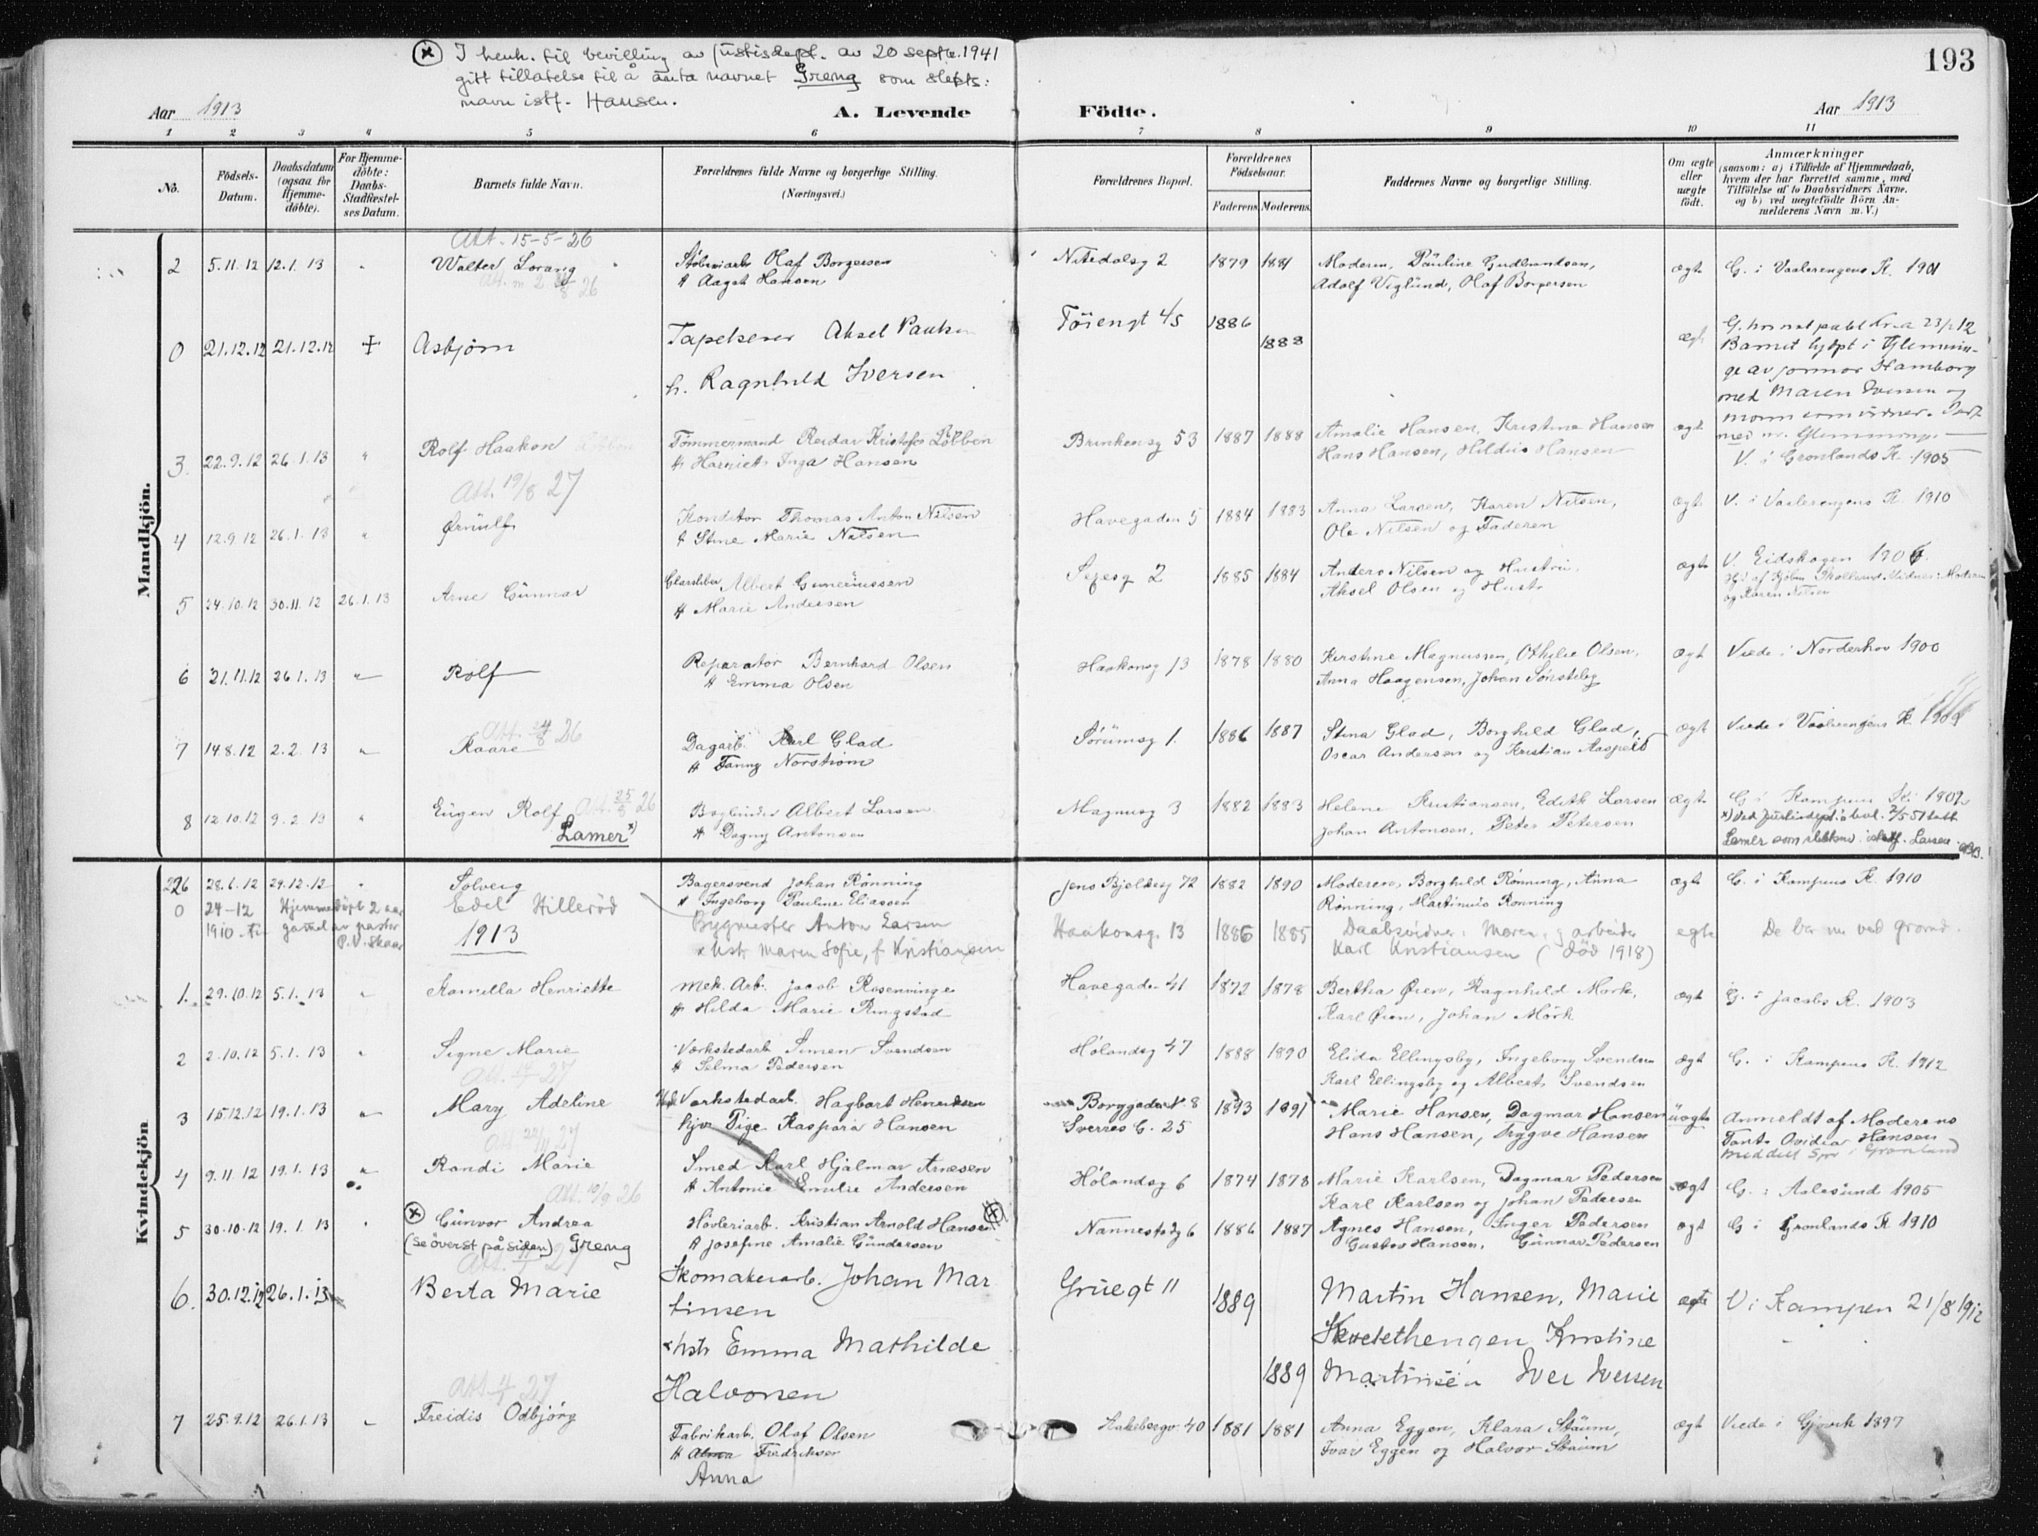 193
(x) I henh. til bevilling av justisdept. av 20 septr. 1941
gitt tillatelse til å anta navnet Greng som slekts-
navn istf. Hansen.
Aar 1913 A. Levende Födte. Aar 1913
1 2 3 4 5 6 7 8 9 10 11
No. Födsels-Datum. Daabsdatum (ogsaa for Hjemme-døbte). For Hjemme-døbte: Daabs-Stadfæstel-ses Datum. Barnets fulde Navn. Forældrenes fulde Navne og borgerlige Stilling. (Næringsvei.) Forældrenes Bopæl. Forældrenes Födselsaar. Faderens Moderens. Faddernes Navne og borgerlige Stilling. Om ægte eller uægte født. Anmærkninger (saasom: a) i Tilfælde af Hjemmedaab, hvem der har forrettet samme, med Tilföielse af to Daabsvidners Navne, og b) ved uægtefödte Börn An-melderens Navn m. V.)
Mandkjön.
Att. 15-5-26
2 5.11.12 12.1.13 " Walter Lorang Olaf Borgersen Nitedalsg 2 1879 1881 Moderen, Pauline Gudbrandsen, ægt G. i Vaalerengens K. 1901
H Aagot Hansen Adolf Viglund, Olaf Borgersen
0 21.12.12 21.12.12 + Asbjørn Tapetserer Aksel Paulsen Töiengt 45 1886 1888 ægt
h. Ragnhild Iversen
Barnet hjdpt i Glemmin-
ge av jormor Hamborg
med Maren Iversen og
3. 22.9.12 26.1.13 " Rolf Haakon Tömmermand Reidar Kristofer Löbben Brinkensg 53 1887 1888 Amalie Hansen, Kristina Hansen ægt
H Harriet Inga Hansen Hans Hansen, Hildus Hansen V. i Grønlands K. 1905
Att. 19/8 27
4 12.9.12 26.1.13 " Ørnulf Konditor Thomas Anton Nilsen Havegaden 5 1884 1883 Anna Larsen, Karen Nilsen, ægt V. i Vaalerengens K 1910
H Stine Marie Nilsen Ole Nilsen og Faderen
5 24.10.12 30.11.12 26.1.13 Arne Gunnar Glassliber Albert Guneriussen 1885 1884 Anders Nilsen og Hustru. ægt V. Eidskogen 1906
H Marie Andersen Aksel Olsen og Hustr og Karen Nilsen
6 21.11.12 26.1.13 " Rolf Reparatør Bernhard Olsen Haakonsg 13 1878 1880 Kirstine Magnussen, Othilie Olsen, ægt Viede i Norderhov 1900
H Emma Olsen Anna Haagensen, Johan Sønsteby
Att. 4/8 26
7 14.8.12 2.2.13 " Kaare Dagarb. Karl Glad Sörumsg 1. 1886 1887 Stina Glad, Borghild Glad, ægt Viede i Vaalerengens K. 1909
H Fanny Norstrøm Oscar Andersen og Kristian Aaspelö
8 12.10.12 9.2.13 " Eugen Rolf Att. 25/8 26 Albert Larsen Magnusg 3 1882 1883 Helene Kristiansen, Edith Larsen ægt G i Kampens K. 1902
Lamer x) H Dagny Antonsen Johan Antonsen, Peter Petersen x) Ved Justisdept.s bevl. 2/5 51 tatt
Lamer som slektsn. istf. Larsen
Kvindekjön
226 28.6.12 29.12.12 " Solveig Bagersvend Johan Rønning Jens Bjelkesg 72 1882 1890 Moderen, Borghild Rønning, Anna ægt G. i Kampens K. 1910
H Ingeborg Pauline Eliassen Rønning, Martinius Rønning
0 24-12 1910 Hjemmedøpt 2 aar gamel av pastor P.V. Skaar Edel Hillerød Bygmester Anton Larsen Haakonsg. 13 1886 1885 Daabsvidner: Moren og arbeider egte De bor nu ved grorud.
1913 Hstr Maren Sofie, f Kristiansen Karl Kristiansen (död 1918)
1. 29.10.12 5.1.13 " Kamilla Henriette Mek. Arb. Jacob Rosenvinge Havegaden 41 1872 1878 Bertha Øien, Ragnhild Mørk, ægt G. i Jacobs K. 1903
H Hilda Marie Ringstad Karl Øien, Johan Mörk
2 2.10.12 5.1.13 " Signe Marie Værkstedarb Simen Svendsen Hölandsg 47 1888 1890 Elida Ellingsby, Ingeborg Svendsen ægt G. i Kampens K. 1912
H Selma Pedersen Karl Ellingsby og Albert Svendsen
3 15.12.12 19.1.13 " Mary Adeline Værkstedarb. Hagbart Henriksen Borggaden 8 1893 1891 Marie Hansen, Dagmar Hansen uægte Anmeldt af Moderens
Pige Kaspara Hansen Sverres G. 25 Hans Hansen, Trygve Hansen Tante Ovidia Hansen
4 9.11.12 19.1.13 " Randi Marie Smed Karl Hjalmar Arnesen Hölandsg 6 1874 1878 Marie Karlsen, Dagmar Pedersen ægt G. i Aalesund 1905
Att. 10/9 26 H Antonie Emilie Andersen Karl Karlsen og Johan Pedersen
5 30.10.12 19.1.13 " (x) Gunvor Andrea Hövleriarb. Kristian Arnold Hansen (x) Nannestadg 6 1886 1887 Agnes Hansen, Inger Pedersen ægt G i Grønlands K. 1910
(se överst på siden) Greng H Josefine Amalie Gundersen Gustav Hansen, Gunnar Pedersen
6. 30.12.12 26.1.13 Berta Marie Skomakerarb. Johan Mar Gruegt 11 1889 Martin Hansen, Marie ægte V i Kampen 21/8 1912
tinsen Kristine
Hstr Emma Mathilde 1889 Martinsen Iver Iversen
Halvorsen
Att. 4/1 27
7 25.9.12 26.1.13 " Freidis Odbjörg Fabrikarb. Olaf Olsen Hakebergv 40 1881 1881 Anna Eggen, Klara Staum, ægt Viede i Gjøvik 1897
H Fredriksen Ivar Eggen og Halvor Staum
Anna